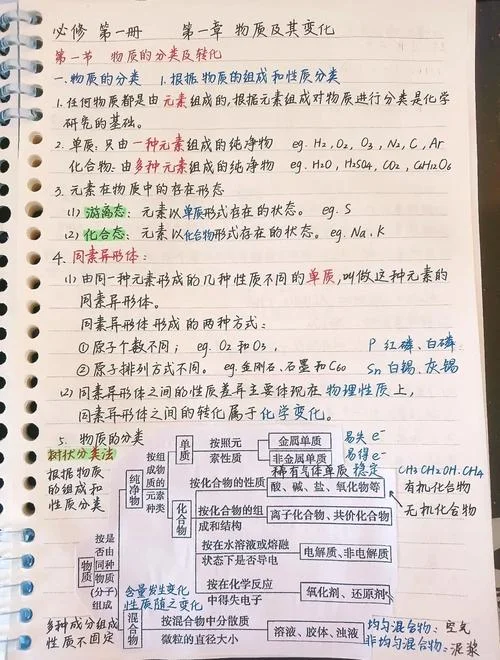 必修 第一册 第一章 物质及其变化
第一节 物质的分类及转化
一.物质的分类 1.根据物质的组成和性质分类
1.任何物质都是由元素组成的,根据元素组成对物质进行分类是化学
研究的基础。
2.单质:只由一种元素组成的纯净物 eg.H₂,O₂,O₃,N₂,C,Ar
化合物:由多种元素组成的纯净物 eg.H₂O,H₂SO₄,CO₂,C₆H₁₂O₆
3.元素在物质中的存在形态
(1)游离态:元素以单质形式存在的状态。 eg.S
(2)化合态:元素以化合物形式存在的状态。 eg.Na,K
4.同素异形体:
(1)由同一种元素形成的几种性质不同的单质,叫做这种元素的
同素异形体。
同素异形体形成的两种方式:
①原子个数不同; eg.O₂和O₃, P 红磷、白磷
②原子排列方式不同。eg.金刚石、石墨和C60 Sn 白锡、灰锡
(2)同素异形体之间的性质差异主要体现在物理性质上,
同素异形体之间的转化属于化学变化。
5.物质的分类
树状分类法
根据物质
的组成和
性质分类
物质
按是否由同种物质(分子)组成
纯净物
按组成物质的元素种类
单质
按照元素性质
金属单质 易失e⁻
非金属单质 易得e⁻
稀有气体单质 稳定
化合物
按化合物的性质
酸、碱、盐、氧化物等
CH₃CH₂OH.CH₄
有机化合物
无机化合物
按化合物的组成和结构
离子化合物、共价化合物
按在水溶液或熔融状态下是否导电
电解质、非电解质
按在化学反应中得失电子
氧化剂、还原剂
含量发生变化
性质随之变化
多种成分组成
性质不固定
混合物
按混合物中分散质微粒的直径大小
溶液、胶体、浊液
均匀混合物:空气
非均匀混合物:泥浆